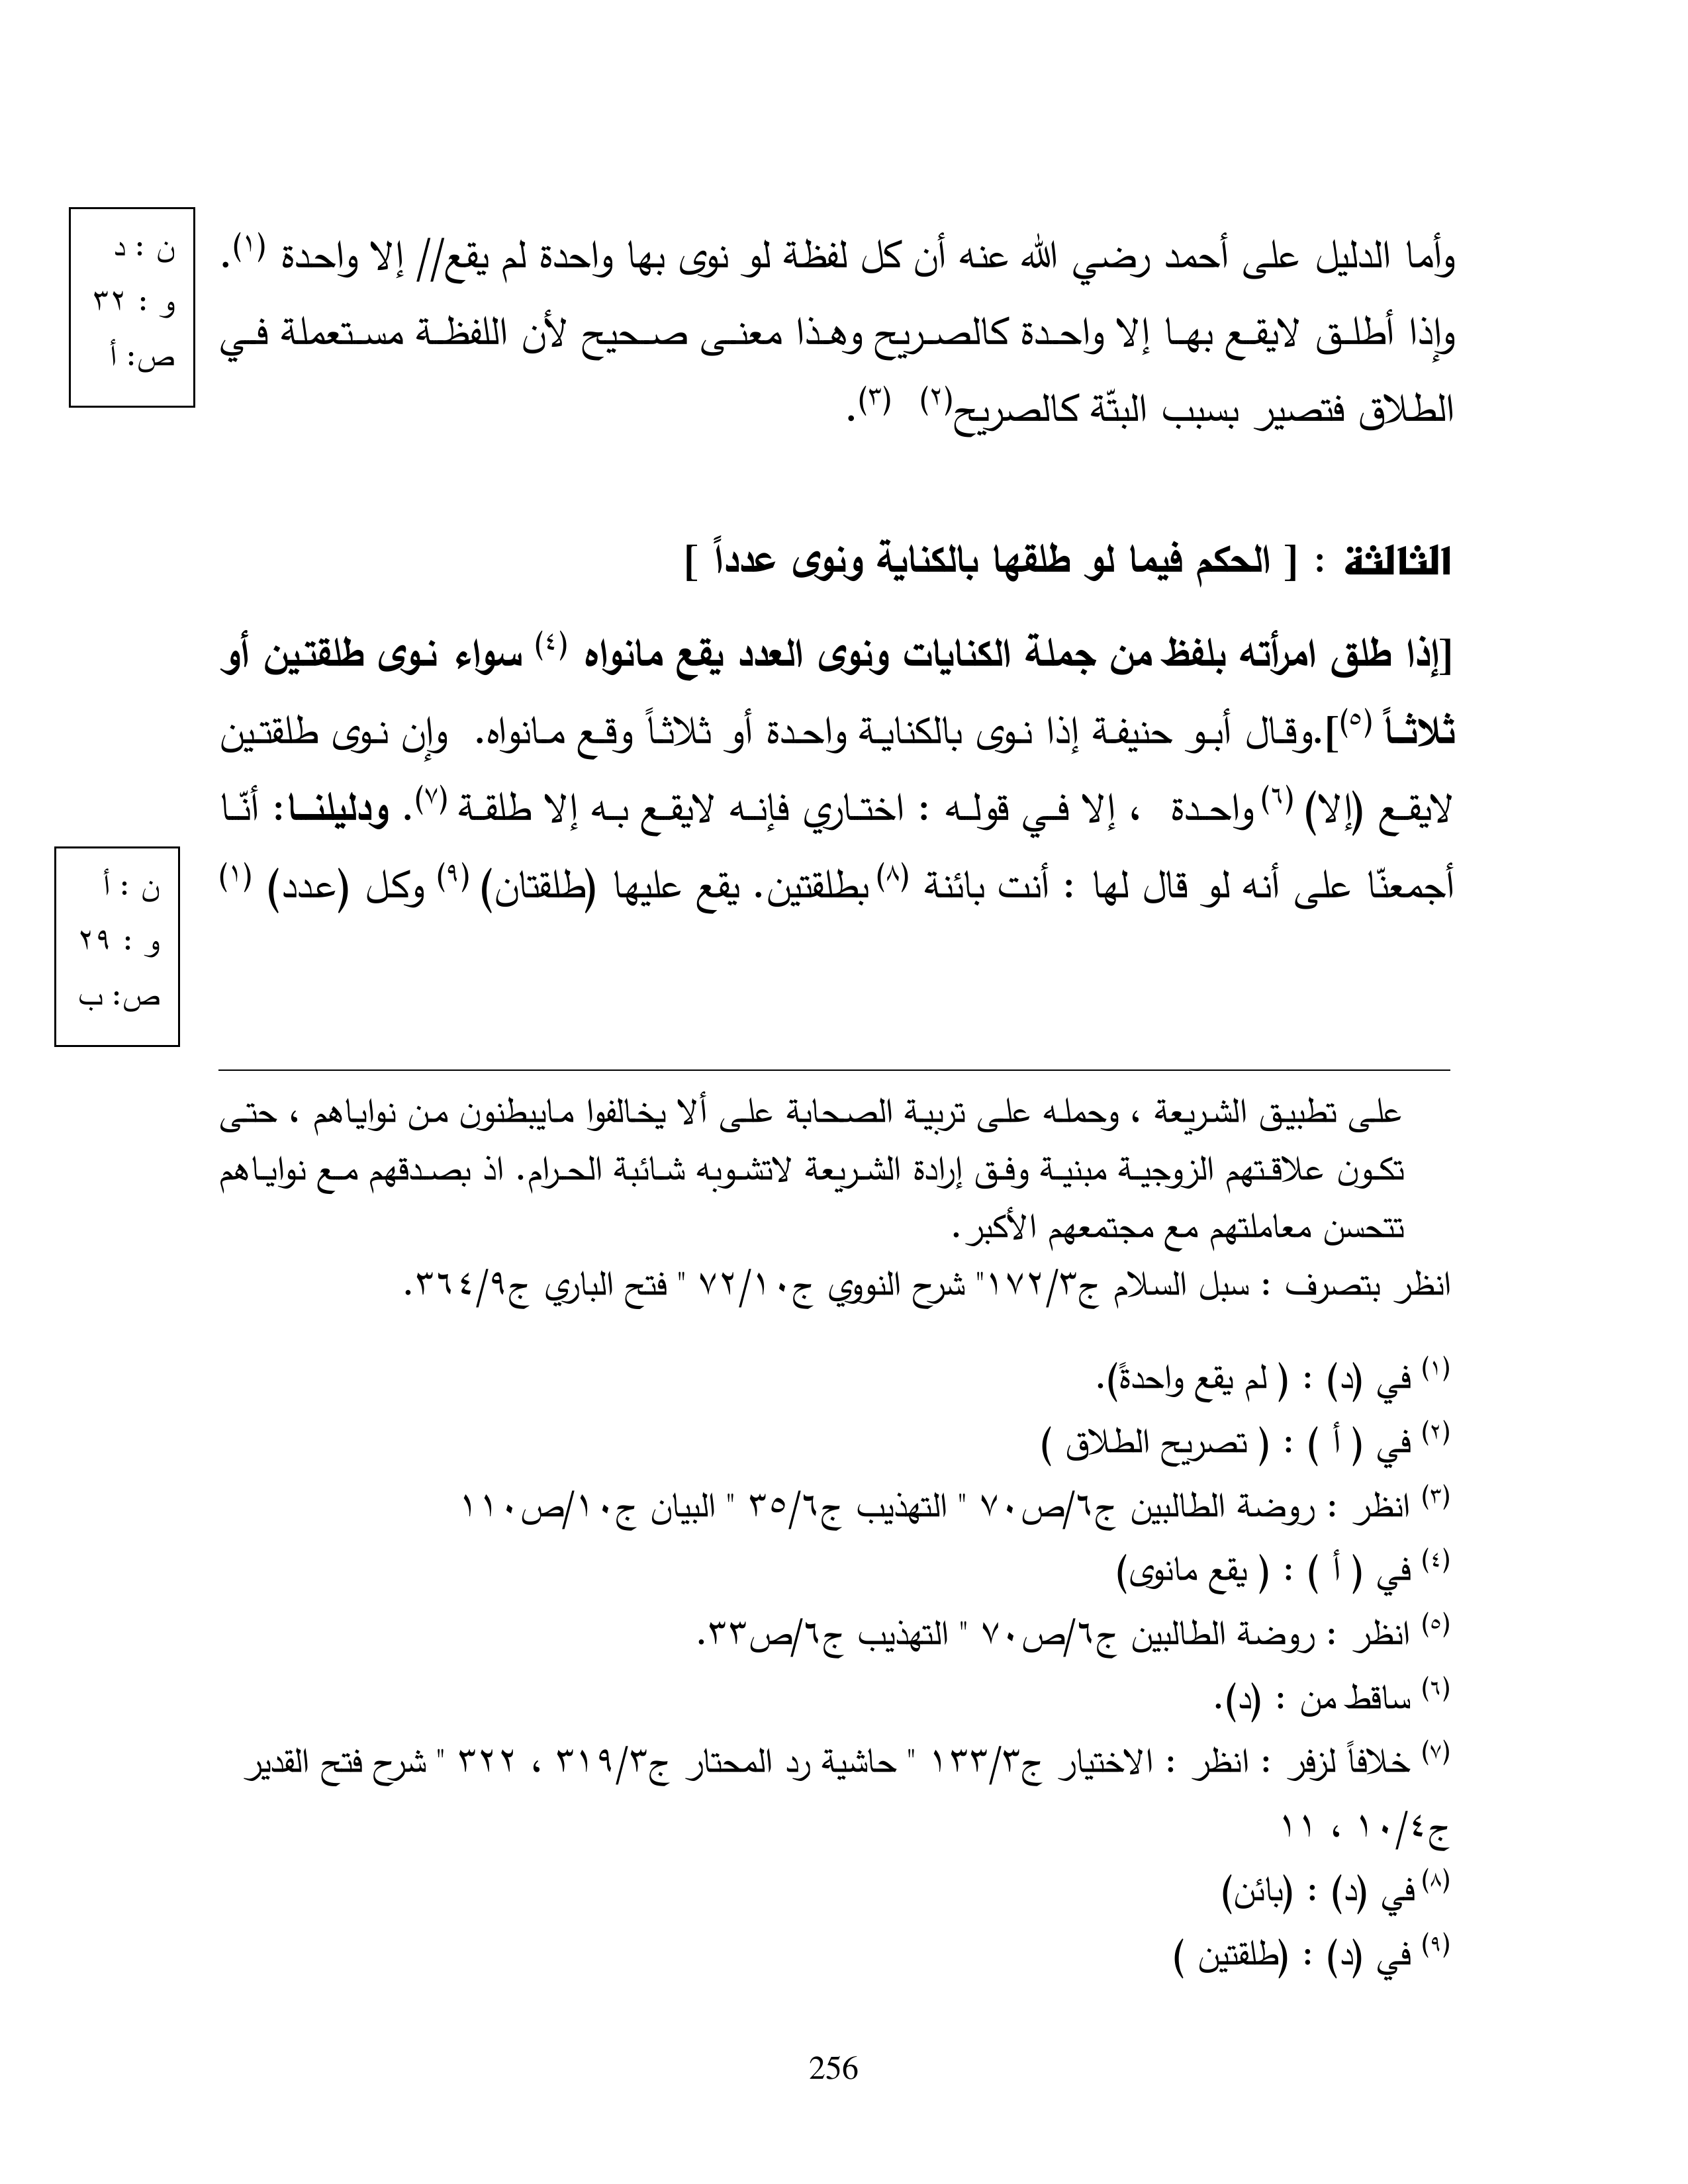 ن : د
و : ٣٢
ص: أ
وأما الدليل على أحمد رضي الله عنه أن كل لفظة لو نوى بها واحدة لم يقع// إلا واحدة (١).
وإذا أطلق لايقع بها إلا واحدة كالصريح وهذا معنى صحيح لأن اللفظة مستعملة في
الطلاق فتصير بسبب البتّة كالصريح(٢) (٣).
الثالثة : [ الحكم فيما لو طلقها بالكناية ونوى عدداً ]
[إذا طلق امرأته بلفظ من جملة الكنايات ونوى العدد يقع مانواه (٤) سواء نوى طلقتين أو
ثلاثاً (٥)].وقال أبو حنيفة إذا نوى بالكناية واحدة أو ثلاثاً وقع مانواه. وإن نوى طلقتين
لايقع (إلا) (٦) واحدة ، إلا في قوله : اختاري فإنه لايقع به إلا طلقة (٧). ودليلنا: أنّا
أجمعنّا على أنه لو قال لها : أنت بائنة (٨) بطلقتين. يقع عليها (طلقتان) (٩) وكل (عدد) (١)
ن : أ
و : ٢٩
ص: ب
على تطبيق الشريعة ، وحمله على تربية الصحابة على ألا يخالفوا مايبطنون من نواياهم ، حتى
تكون علاقتهم الزوجية مبنية وفق إرادة الشريعة لاتشوبه شائبة الحرام. اذ بصدقهم مع نواياهم
تتحسن معاملتهم مع مجتمعهم الأكبر.
انظر بتصرف : سبل السلام ج٣/١٧٢" شرح النووي ج١٠/٧٢ " فتح الباري ج٩/٣٦٤.
(١) في (د) : ( لم يقع واحدةً).
(٢) في ( أ ) : ( تصريح الطلاق )
(٣) انظر : روضة الطالبين ج٦/ص٧٠ " التهذيب ج٦/٣٥ " البيان ج١٠/ص١١٠
(٤) في ( أ ) : ( يقع مانوى)
(٥) انظر : روضة الطالبين ج٦/ص٧٠ " التهذيب ج٦/ص٣٣.
(٦) ساقط من : (د).
(٧) خلافاً لزفر : انظر : الاختيار ج٣/١٣٣ " حاشية رد المحتار ج٣/٣١٩ ، ٣٢٢ " شرح فتح القدير
ج٤/١٠ ، ١١
(٨) في (د) : (بائن)
(٩) في (د) : (طلقتين )
256